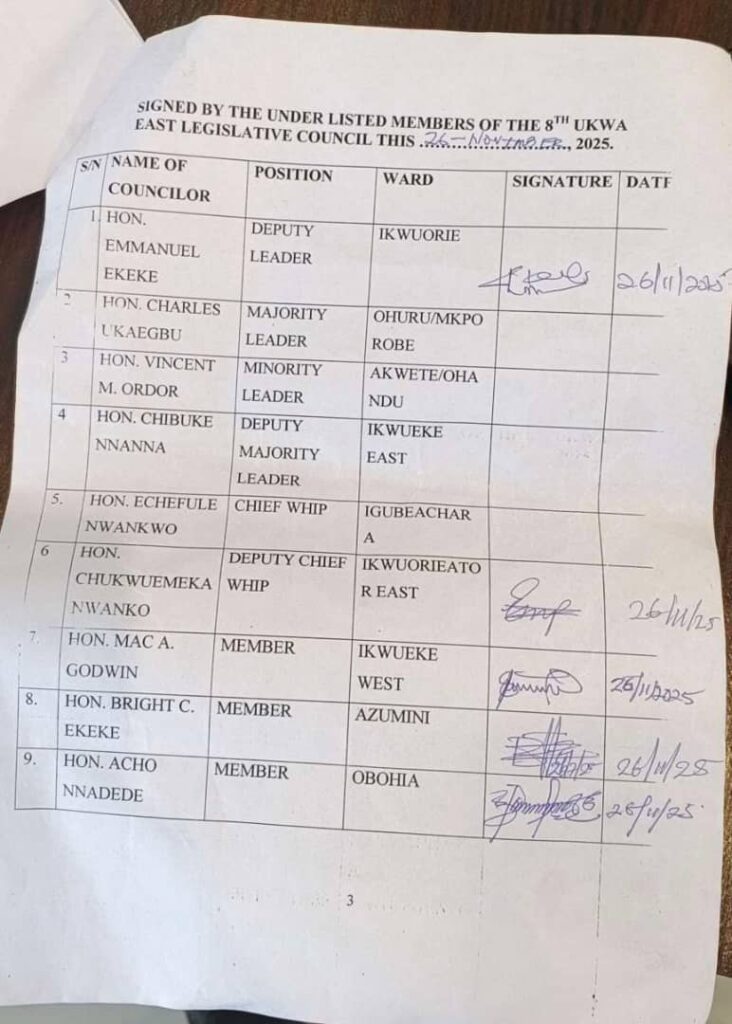 SIGNED BY THE UNDER LISTED MEMBERS OF THE 8TH UKWA
EAST LEGISLATIVE COUNCIL THIS 26-NOVEMBER, 2025.
S/N NAME OF COUNCILOR POSITION WARD SIGNATURE DATE
1. HON. EMMANUEL EKEKE DEPUTY LEADER IKWUORIE 26/11/2025
2 HON. CHARLES UKAEGBU MAJORITY LEADER OHURU/MKPO ROBE
3 HON. VINCENT M. ORDOR MINORITY LEADER AKWETE/OHA NDU
4 HON. CHIBUKE NNANNA DEPUTY MAJORITY LEADER IKWUEKE EAST
5. HON. ECHEFULE NWANKWO CHIEF WHIP IGUBEACHAR A
6 HON. CHUKWUEMEKA NWANKO DEPUTY CHIEF WHIP IKWUORIEATO R EAST 26/11/25
7. HON. MAC A. GODWIN MEMBER IKWUEKE WEST 26/11/2025
8. HON. BRIGHT C. EKEKE MEMBER AZUMINI 26/11/25
9. HON. ACHO NNADEDE MEMBER OBOHIA 26/11/25
3